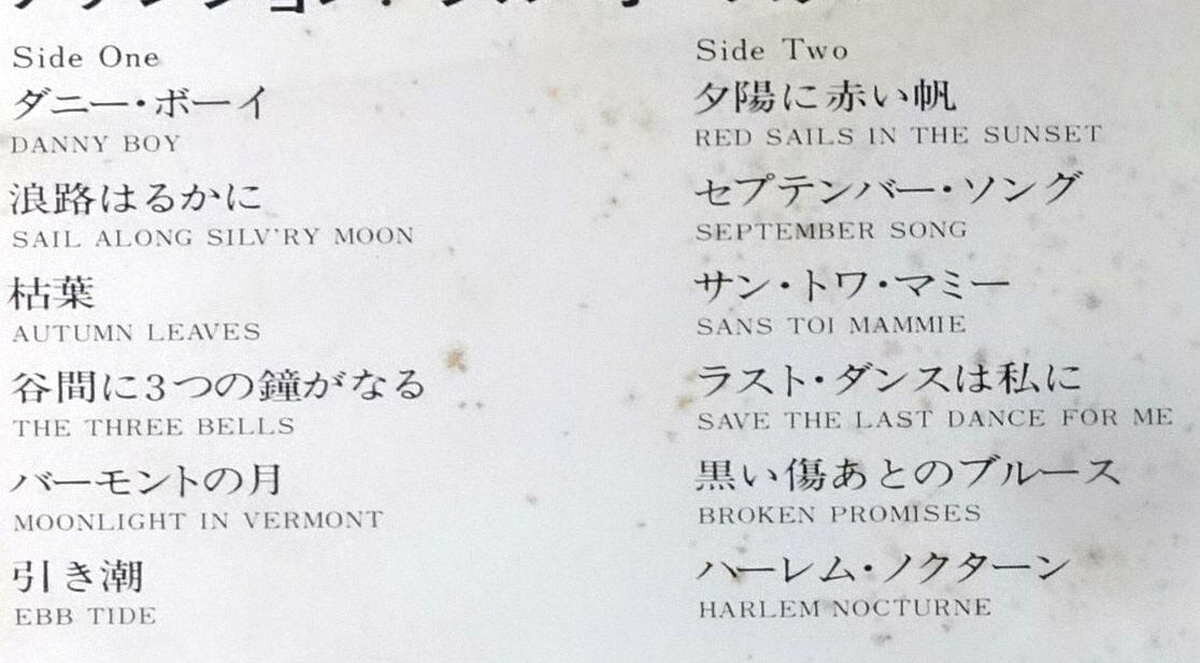 Side One
ダニー・ボーイ
DANNY BOY
浪路はるかに
SAIL ALONG SILV'RY MOON
枯葉
AUTUMN LEAVES
谷間に3つの鐘がなる
THE THREE BELLS
バーモントの月
MOONLIGHT IN VERMONT
引き潮
EBB TIDE
Side Two
夕陽に赤い帆
RED SAILS IN THE SUNSET
セプテンバー・ソング
SEPTEMBER SONG
サン・トワ・マミー
SANS TOI MAMMIE
ラスト・ダンスは私に
SAVE THE LAST DANCE FOR ME
黒い傷あとのブルース
BROKEN PROMISES
ハーレム・ノクターン
HARLEM NOCTURNE